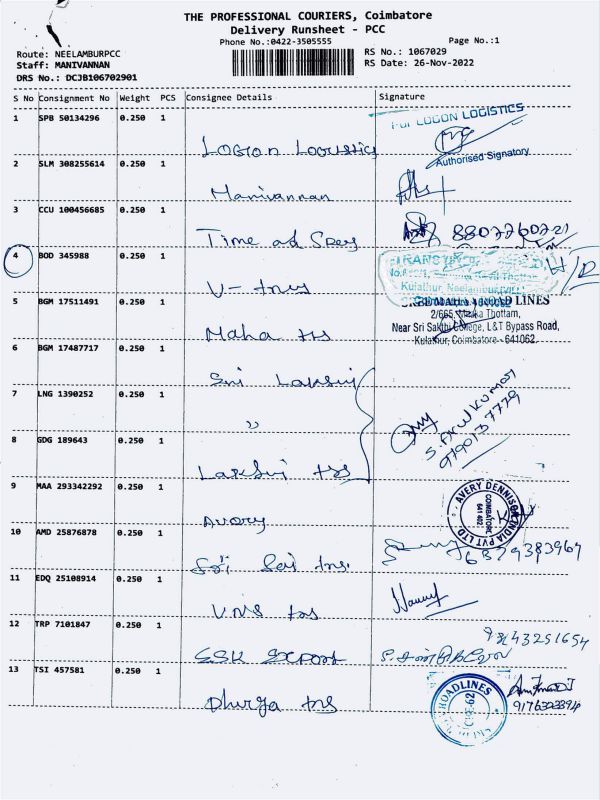 THE PROFESSIONAL COURIERS, Coimbatore
Delivery Runsheet - PCC
Phone No.:0422-3505555
Page No.:1
Route: NEELAMBURPCC
RS No.: 1067029
Staff: MANIVANNAN
RS Date: 26-Nov-2022
DRS No.: DCJB106702901
S No Consignment No Weight PCS Consignee Details Signature
1 SPB 50134296 0.250 1 Logon Logistics For LOGON LOGISTICS
Authorised Signatory
2 SLM 308255614 0.250 1 Manivannan
3 CCU 100456685 0.250 1 Time ad Space 8807760721
4 BOD 345988 0.250 1 V- Trns
Kulathur, Neelambur
5 BGM 17511491 0.250 1 Maha trs ROAD LINES
2/665, Thottam,
Near Sri Sakthi College, L&T Bypass Road,
Kulathur, Coimbatore - 641062.
6 BGM 17487717 0.250 1 Sri Laksmi
7 LNG 1390252 0.250 1 ,, S. Arun Kumar
9790137779
8 GDG 189643 0.250 1 Laksmi trs
9 MAA 293342292 0.250 1 Avery AVERY DENNISON INDIA PVT LTD
COIMBATORE
641 402
10 AMD 25876878 0.250 1 Sri Sai trns. 6379383967
11 EDQ 25108914 0.250 1 VNS trs
12 TRP 7101847 0.250 1 SSK Export 9843251654
13 TSI 457581 0.250 1 Dhurga trns ROADLINES
CBE-62